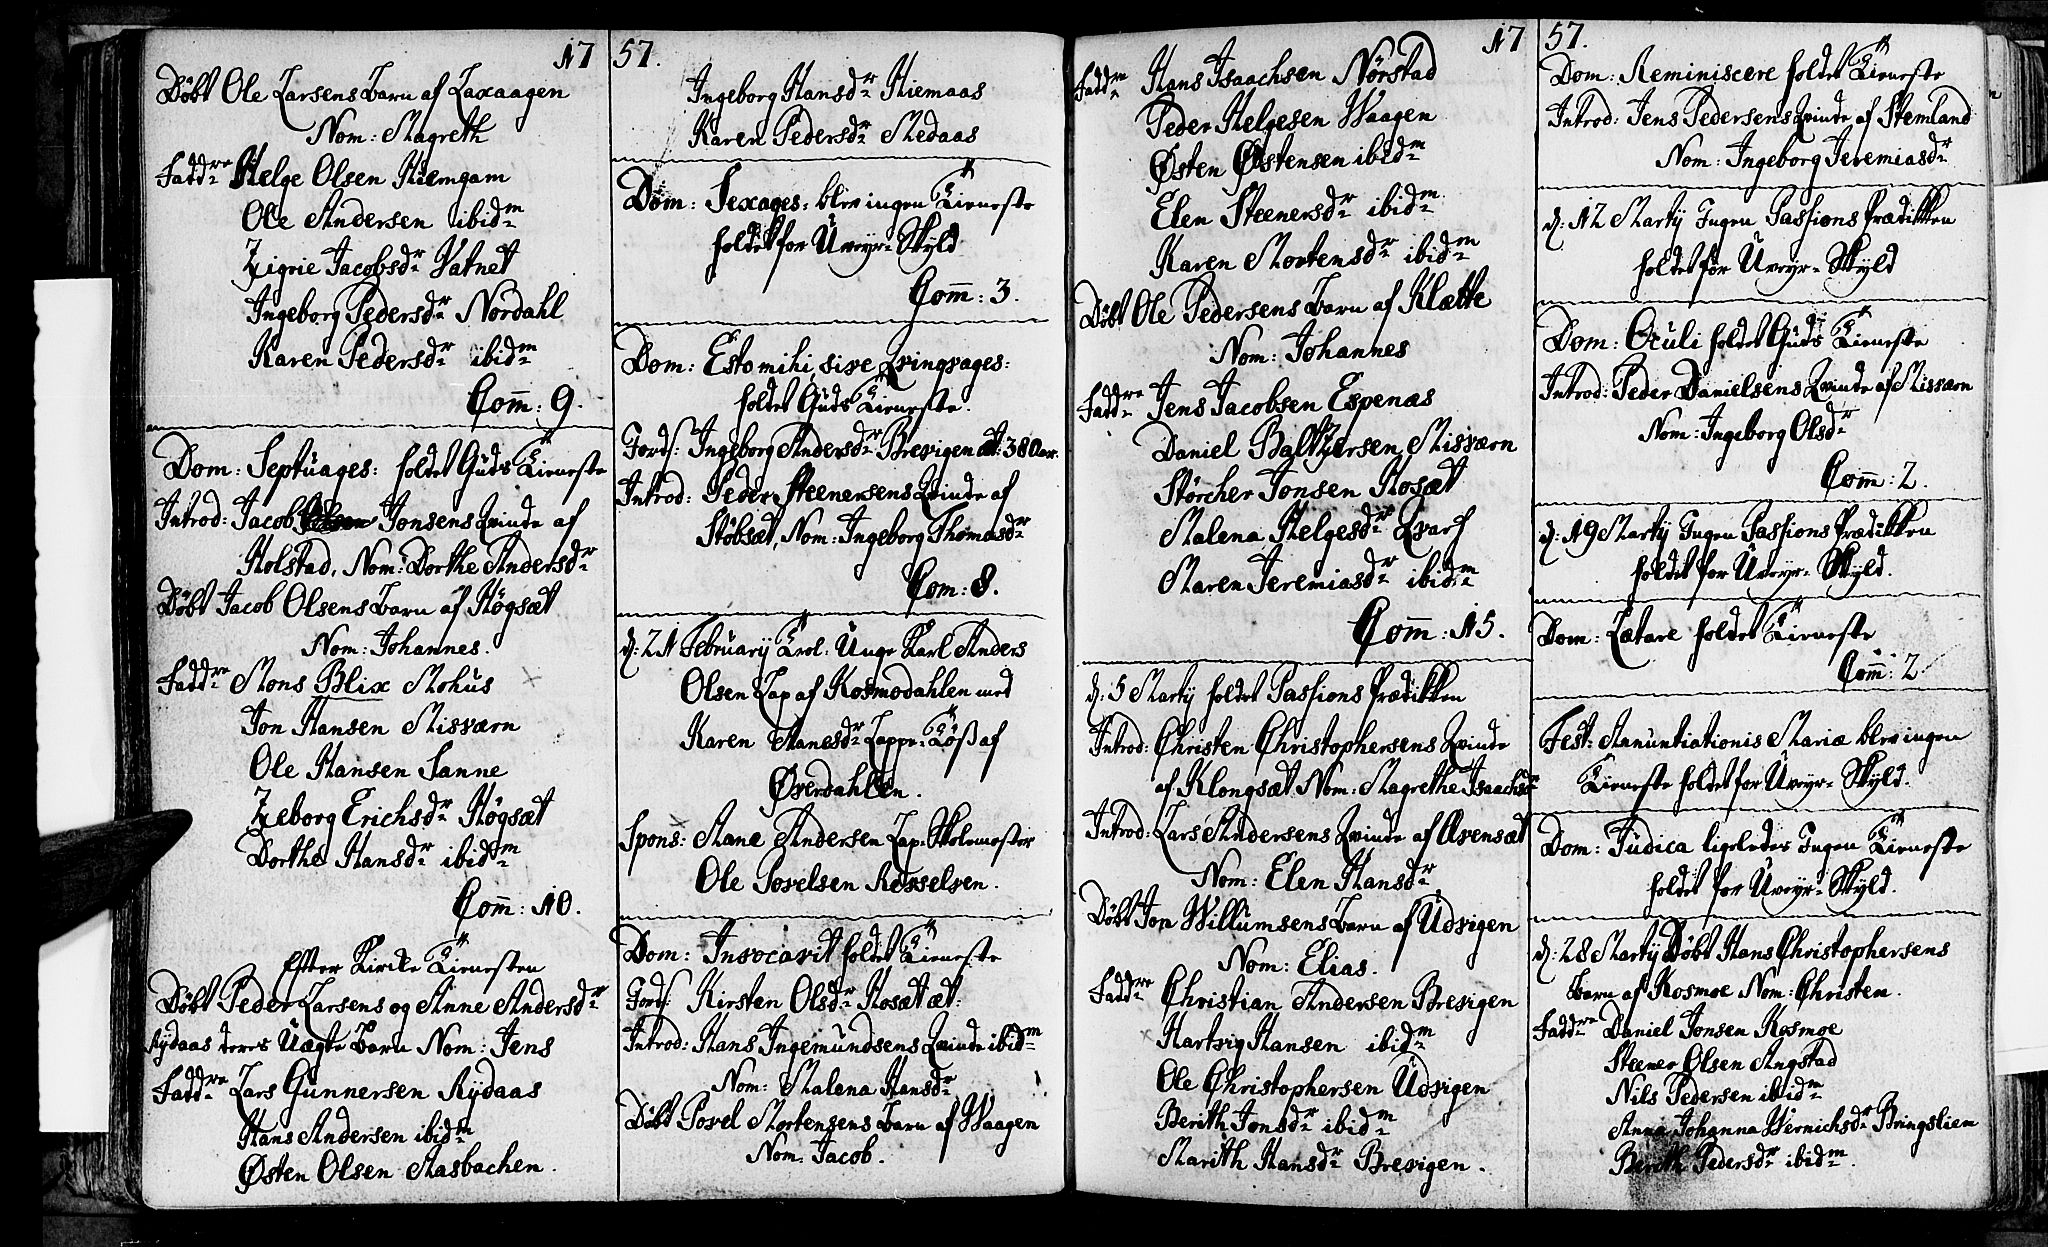 17
57.
Døbt Ole Larsens Barn af Laxaagen
Nom: Magreth
Faddre Helge Olsen Hiemgam
Ole Andersen ibidm
Zigrie Jacobsdr Vatnet
Ingeborg Pedersdr Nordahl
Karen Pedersdr ibidm
Com̄: 9.
Dom: Septuages: holdet Guds Tieneste
Introd: Jacob Jonsens Qvinde af
Holstad, Nom: Dorthe Andersdr
Døbt Jacob Olsens Barn af Høgsæt
Nom: Johannes.
Faddre Mons Blix Mohus
Jon Hansen Misværn
Ole Hansen Sanne
Zeborg Erichsdr Høgsæt
Dorthe Hansdr ibidm
Com̄: 10.
Efter Kirke Tienesten
Døbt Peder Larsens og Anne Andersdr
Rydaas deres Uægte Barn Nom: Jens
Faddre Lars Gunnersen Rydaas
Hans Andersen ibidm
Østen Olsen Aasbachen.
Ingeborg Hansdr Hiemaas
Karen Pedersdr Medaas
Dom: Sexages: blev ingen Tieneste
holdet for Uveyr-Skyld
Com̄: 3.
Dom: Esto mihi, sive Qvinqvages:
holdet Guds Tieneste.
Jords: Ingeborg Andersdr Brevigen æt: 38 Aar.
Introd: Peder Steenersens Qvinde af
Stôbsæt, Nom: Ingeborg Thomasdr
Com: 8.
d: 21 Februarij Trol: Unge Karl Anders
Olsen Lap af Kosmodahlen med
Karen Aanesdr Lappe-Tøß af
Øverdahlen.
Spons: Aane Andersen Lap-Skolemester
Ole Povelsen Revselven.
Dom: Invocavit holdet Tieneste
Jords: Kirsten Olsdr Hosæt æt:
Introd: Hans Ingemundsens Qvinde ibidm
Nom: Malena Hansdr
Døbt Povel Mortensens Barn af Waagen
Nom: Jacob.
17
57.
Faddre Hans Isaachsen Nørstad
Peder Helgesen Waagen
Østen Østensen ibidm
Elen Steenersdr ibidm
Karen Mortensdr ibidm
Døbt Ole Pedersens Barn af Klætte
Nom: Johannes
Faddre Jens Jacobsen Espenæs
Daniel Baltzersen Misværn
Størcher Jonsen Hosæt
Malena Helgesdr Qvarf
Maren Jeremiasdr ibidm
Com̄: 15.
d: 5 Martij holdet Passions Prædikken
Introd: Christen Christophersens Qvinde
af Klongsæt Nom: Magrethe Isaachsdr
Introd: Lars Andersens Qvinde af Alvensæt
Nom: Elen Hansdr
Døbt Jon Willumsens Barn af Udvigen
Nom: Elias.
Faddre Christian Andersen Brevigen
Hartvig Hansen ibidm
Ole Christophersen Udvigen
Berith Jonsdr ibidm
Marith Hansdr Brevigen.
Dom: Reminiscere holdet Tieneste
Introd: Jens Pedersens Qvinde af Stemland
Nom: Ingeborg Jeremiasdr
d: 12 Martij Ingen Passions Prædikken
holdet for Uveyr-Skyld
Dom: Oculi holdet Guds Tieneste
Introd: Peder Danielsens Qvinde af Misværn
Nom: Ingeborg Olsdr
Com̄: 2.
d: 19 Martij Ingen Passions Prædikken
holdet for Uveyr-Skyld.
Dom: Lætare holdet Tieneste
Com̄: 2
Fest: Anuntiationis Mariæ blev ingen
Tieneste holdet for Uveyr-Skyld.
Dom: Judica ligeledes Ingen Tieneste
holdet for Uveyr-Skyld.
d: 28 Martij Døbt Hans Christophersens
Barn af Kosmoe Nom: Christen.
Faddre Daniel Jonsen Kosmoe
Steener Olsen Angstad
Nils Pedersen ibidm
Anna Johanna Wernichsdr Bringslien
Berith Pedersdr ibidm.